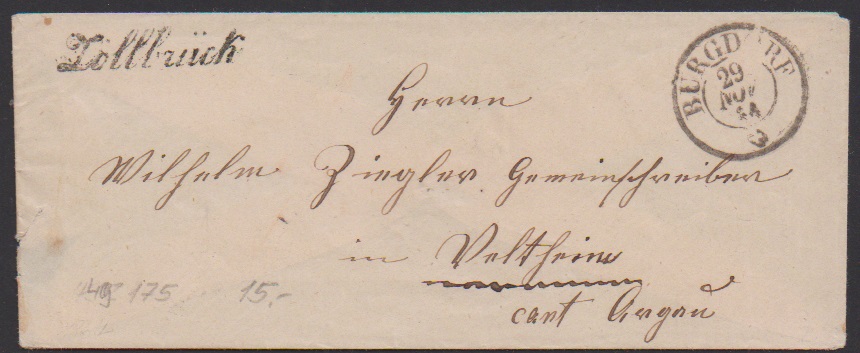 Zollbrück
BURGDORF
29
NOV
Herrn
Wilhelm Ziegler Gemeinschreiber
in Veltheim
cant Argau
175 15.-